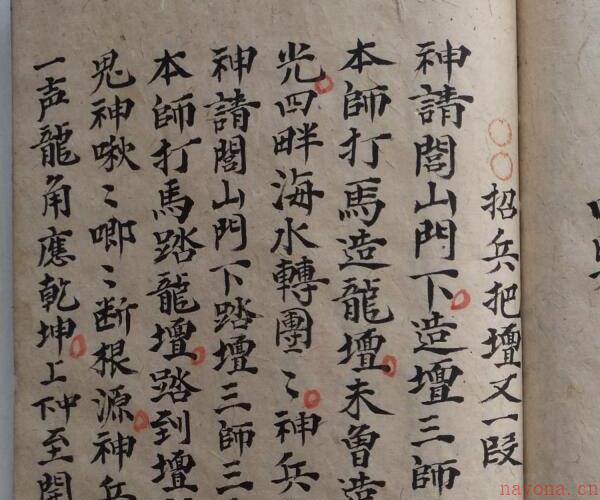 招兵把壇又一段
神請閭山門下造壇三師
本師打馬造龍壇未曽造
光四畔海水轉團〻神兵
神請閭山門下踏壇三師三
本師打馬踏龍壇踏到壇
鬼神啾〻唧〻断根源神兵
一声龍角應乾坤上中至開
nayona.cn